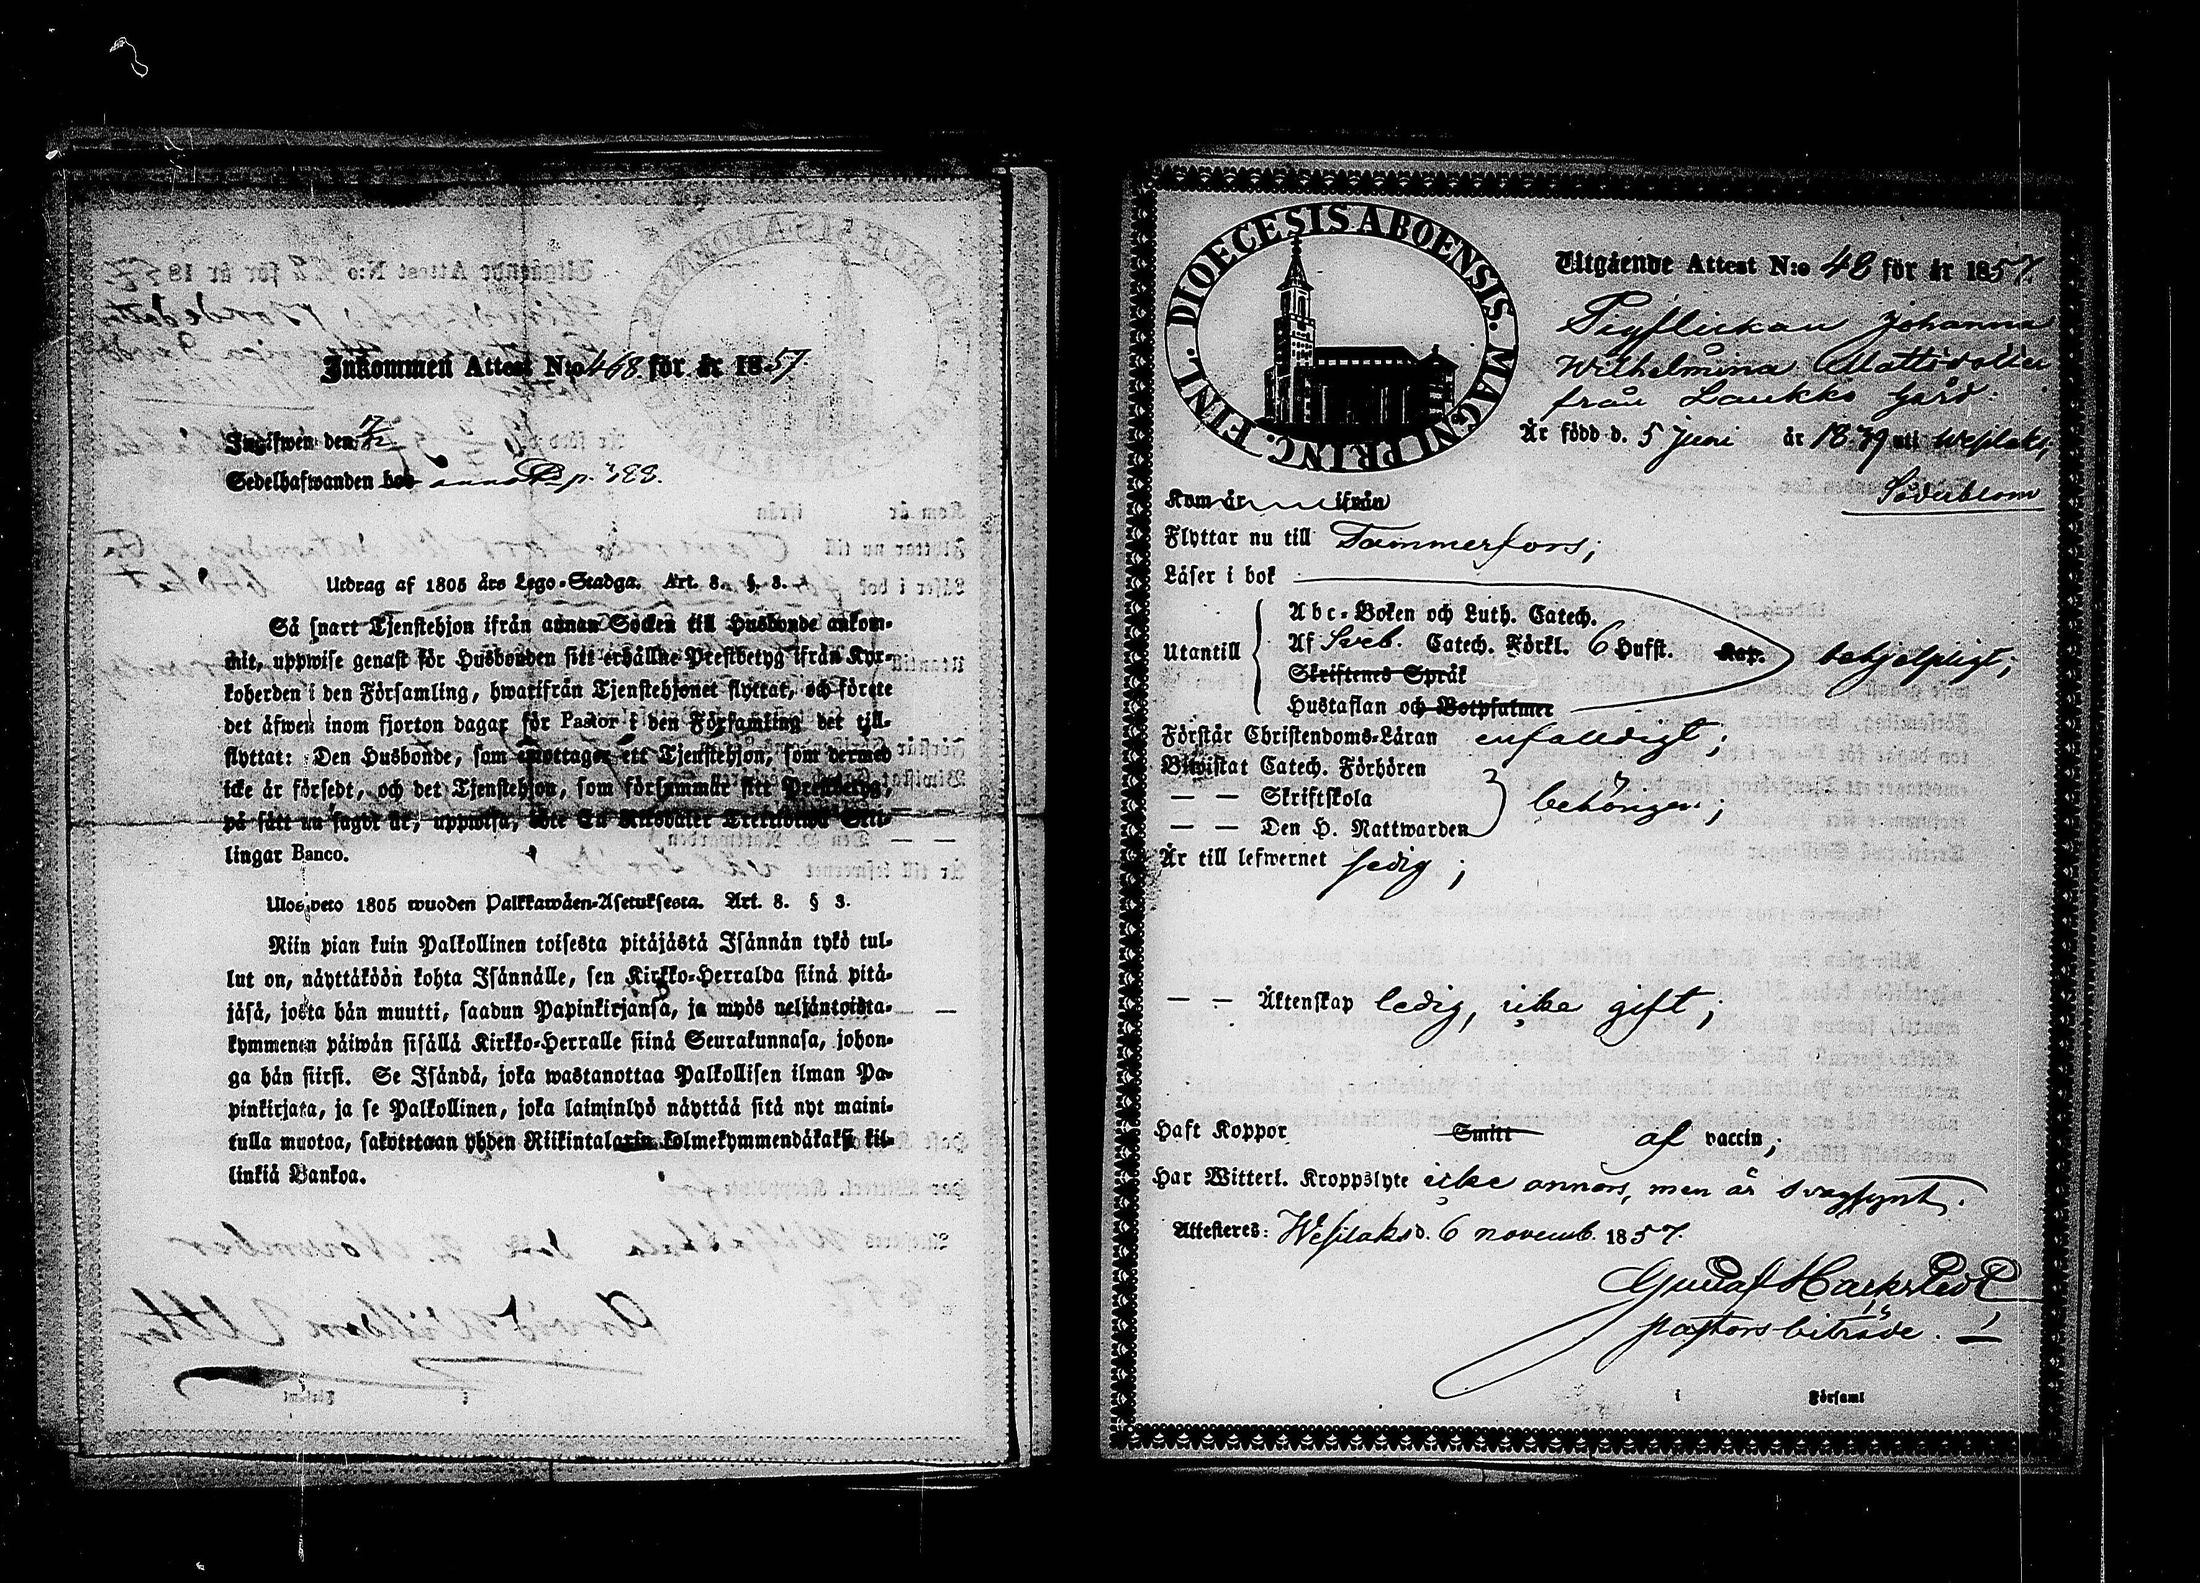 Inkommen Attest N:o 468 för år 1857.
Ingifwen den 17/12 57
Sedelhafwanden hos anno p. 388.
Utdrag af 1805 års Lego-Stadga. Art. 8. § 3.
Så snart Tjenstehjon ifrån annan Socken till Husbonde ankom-
mit, uppwise genast för Husbonden sitt erhållne Prestbetyg ifrån Kyr-
koherden i den Församling, hwarifrån Tjenstehjonet flyttat, och förete
det äfwen inom fjorton dagar för Pastor i den Församling det till-
flyttat: Den Husbonde, som emottager ett Tjenstehjon, som dermed
icke är försedt, och det Tjenstehjon, som försummar sitt Prestbetyg,
på sätt nu sagdt är, uppwisa, böte En Riksdaler Trettiotwå Skil-
lingar Banco.
Ulosweto 1805 wuoden Palkkawäen-Asetuksesta. Art. 8. § 3.
Niin pian kuin Palkollinen toisesta pitäjästä Isännän tykö tul-
lut on, näyttäköön kohta Isännälle, sen Kirkko-Herralda siinä pitä-
jäsä, josta hän muutti, saadun Papinkirjansa, ja myös neljäntoista-
kymmenen päiwän sisällä Kirkko-Herralle siinä Seurakunnasa, johon-
ga hän siirsi. Se Isändä, joka wastanottaa Palkollisen ilman Pa-
pinkirjata, ja se Palkollinen, joka laiminlyö näyttää sitä nyt maini-
tulla muotoa, sakotetaan yhden Riikintalarin kolmekymmendäkaksi kil-
linkiä Bankoa.
DIOECESIS ABOENSIS. MAGNI PRINC. FINL.
Utgående Attest N:o 48 för år 1857.
Pigflickan Johanna
Wilhelmina Mattsdotter
från Laukko gård.
Är född d. 5 Juni år 1839 uti Wesilaks,
Söderblom
Kom år ifrån
Flyttar nu till Tammerfors;
Läser i bok
Abc-Boken och Luth. Catech.
Utantill Af Sveb. Catech. Förkl. 6 Hufst. Kap. behjelpligt;
Skriftenes Språk
Hustaflan och Botpsalmer
Förstår Christendoms-Läran enfalldigt;
Biwistat Catech. Förhören
— — Skriftskola behörigen;
— — Den H. Nattwarden
Är till lefwernet sedig;
— — Äktenskap ledig, icke gift;
Haft Koppor Smitt af vaccin;
Har Witterl. Kroppslyte icke annors, men är svagsynt.
Attesteres: Wesilaks d. 6 novemb. 1857.
Gustaf
pastorsbiträde.
i Församl